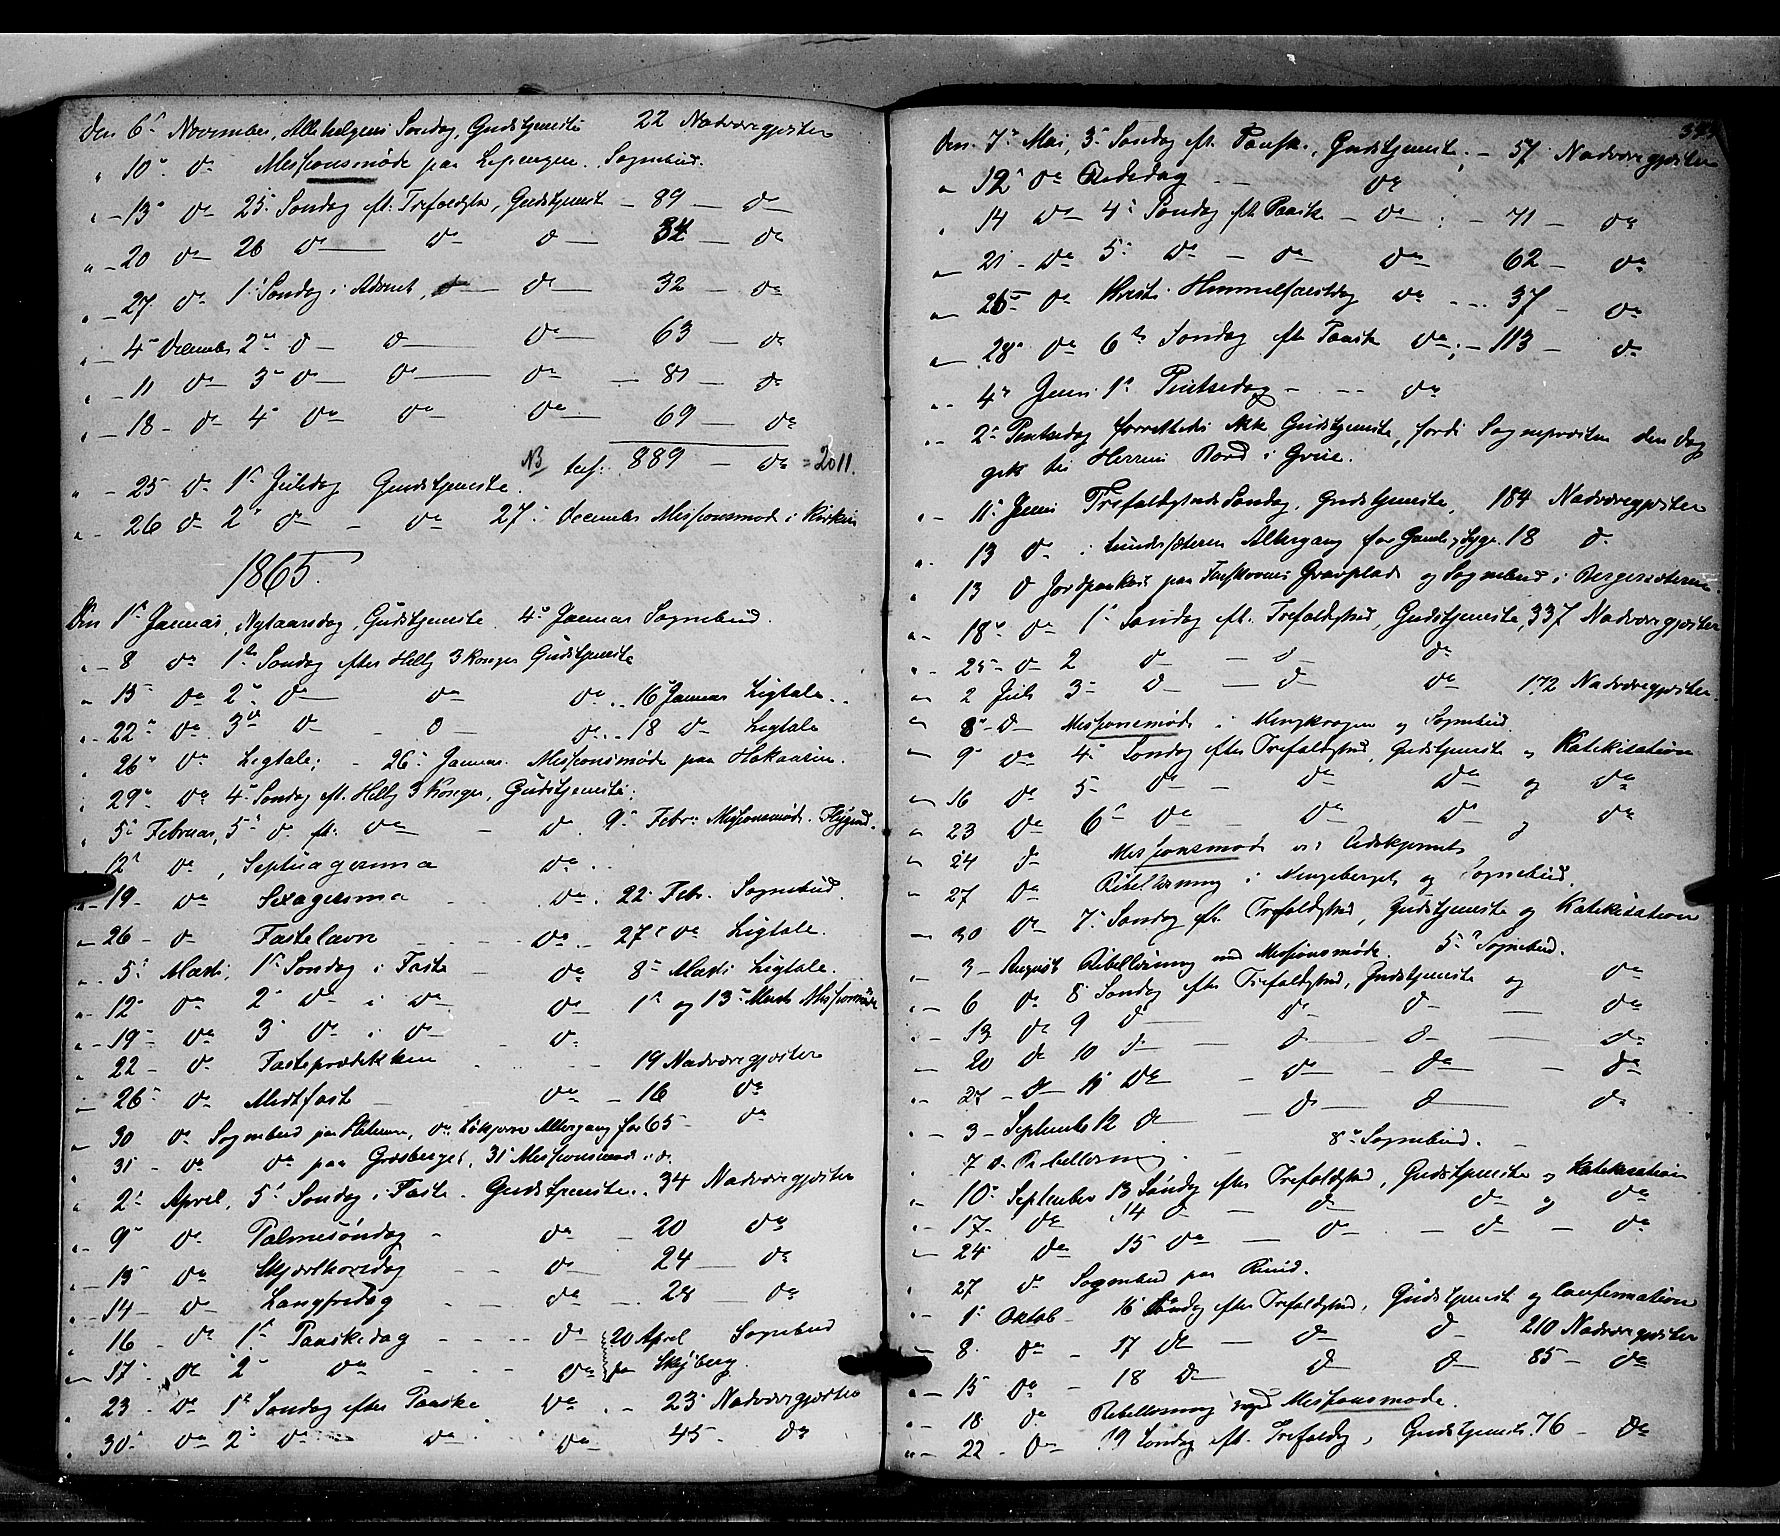 Den 6t November, Allehelgens Søndag, Gudstjeneste 22 Nadværegjester
" 10" do Missionsmøde paa Lepengen. Sognebud.
" – 13" do 25. Søndag eft. Trefoldigh, Gudstjenest – 89 – do
" – 20 do 26 do do do 34 – do
" – 27. do 1t Søndag i Advent, do – 32 – do
" – 4" December 2" do – do do 63 – do
" – 11 do 3" do – do do – 81 – do
" – 18 – do 4" do do do – 69 – do
NB tils: 889 – do = 2011.
" – 25 do 1t Juledag Gudstjeneste.
" – 26 do 2" do – do 27" December Missionsmøde i Kirken
1865.
Den 1t Januar, Nytaarsdag, Gudstjeneste. 4" Januar Sognebud.
" – 8 do 1ste Søndag efter Hellig 3 Konger Gudstjeneste
" – 15 do 2" do do do .. 16" Januar Ligtale ..
" – 22" do 3d do – do – do .. 18 do Ligtale
" 26" do Ligtale; – 26" Januar Missionsmøde paa Hakaasen.
" 29" do 4" Søndag eft. Hellig 3 Konger, Gudstjeneste;
" 5" Februar, 5" do ft. do – do 9" Febr: Missionsmøde. Flygind.
12" do, Septuagesima do ..
" – 19 – do Sexagesima . . do . 22" Febr. Sognebud.
" – 26 – do Fastelavn . . . do – 27" do Ligtale.
" – 5" Marts, 1t Søndag i Faste – do 8" Marts Ligtale.
" – 12" do 2" do i do do – 1t og 13" Marts Missionsmøde
" – 19 – do 3" do i do – do
" – 22 – do Fasteprædikken . . . – – 19 Nadværegjester
" – 26" do Midtfaste – – do – 16 do
" – 30 do Sognebud paa, do: Altergang for 65 – do
" 31 – do do paa Grøsberget, 31" Missionsmøde i do.
" 2" April, 5" Søndag i Faste – Gudstjeneste. . 34 Nadværegjester
" – 9" do Palmesøndag – do – 20 do
" – 13" do Skjærthorsdag – – do – 24 – do
" – 14 – do Langfredag – – do – . 28 – do
" – 16 – do 1t Paaskedag – – – – do 20 April Sognebud
" – 17" do 2" do – – – do paa Skjberg.
" 23 – do 1t Søndag efter Paaske do . – 23" Nadværegjester
" 30" do 2" do do do – 45 – do
Den 7" Mai, 3" Søndag eft. Paaske, Gudstjeneste; – 57 Nadværegjester
" – 12" do Bededag – – do
" 14 do – 4" Søndag eft. Paaske – do – ; – 71 – do
" – 21 – do 5" do – do do – 62 – do
" – 25 – do Christi Himmelfartsdag do – . . 37 – do
" – 28" do 6te Søndag eft. Paaske do ; – 113 – do
" – 4" Juni 1t Pintsedag – . – – do
" – 2" Pintsedag forrettedes ikke Gudstjeneste, fordi Sognepræsten den Dag
gik til Herrens Bord i Grue.
" – 11" Juni Trefoldigheds Søndag, Gudstjeneste, 184 Nadværegjester
" 13 do i Lundesæteren Altergang for Gamle & Syge. 18 do
" 13 do Jordpaakast paa Finskovens Gravplads og Sognebud i Bergersæteren.
" – 18" do 1t Søndag eft. Trefoldighed, Gudstjeneste, 337 Nadværegjester
" – 25 – do 2 do – do do
" 2 Juli 3" do – do do 172 Nadværegjester.
" – 8" do – Missionsmøde i Mengkrogen og Sognebud.
" – 9" do 4" Søndag efter Trefoldighed, Gudstjeneste og Katekisation
" – 16 do 5" do – do do og do
" 23 do 6t do – do do og do
" – 24 do – Missionsmøde ved Aadskjernet
" – 27 do Bibellæsning i Mengeberget og Sognebud.
" – 30 do 7" Søndag eft. Trefoldighed, Gudstjeneste og Katekisation
" 3 – August Bibellæsning med Missionsmøde. 5" Sognebud.
" – 6 do 8" Søndag efter Trefoldighed, Gudstjeneste og do
" – 13 do 9 do – do do – do
" – 20 do 10 do – do do – do
" – 27 – do – 11 do – do – do – do
" – 3 – September 12 do – do – do do
" 7 do Bibellæsning. – 8" Sognebud. –
" – 10" September 13 Søndag efter Trefoldighed, Gudstjeneste og Katekisation
" – 17 – do 14 do – do do og do
" – 24" do 15 do – do – do – do
" 27 do Sognebud paa Rund.
" – 1" Oktob – 16 Søndag efter Trefoldighed, Gudstjeneste og Confirmation
" – 8. do – 17 do – do do – 210 Nadværegjester
" – 15 do – 18 do do do 85 – do
" – 18 do Bibellæsning med Missionsmøde.
" – 22 – do 19 Søndag eft. Trefoldigh, Gudstjeneste. 76 – do